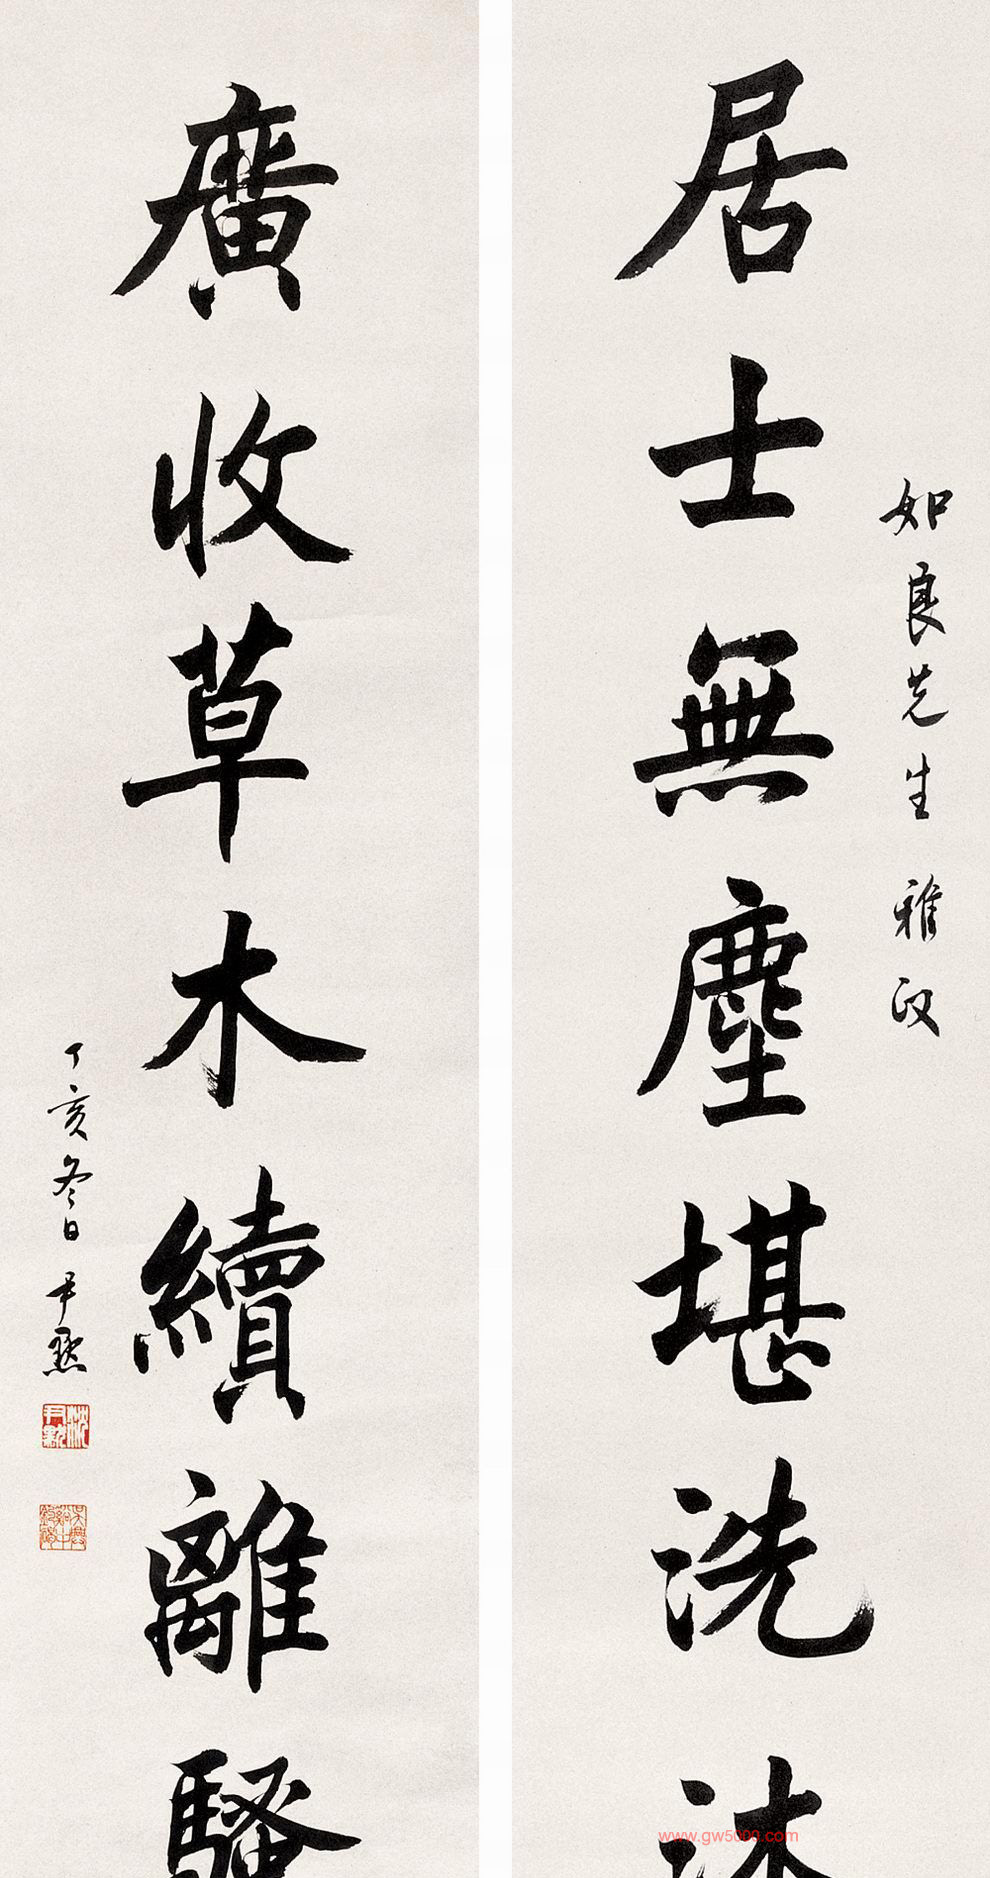 如良先生 雅政
居士無塵堪洗沐
廣收草木續離騷
丁亥冬日 尹默
沈尹默
www.gw5000.com